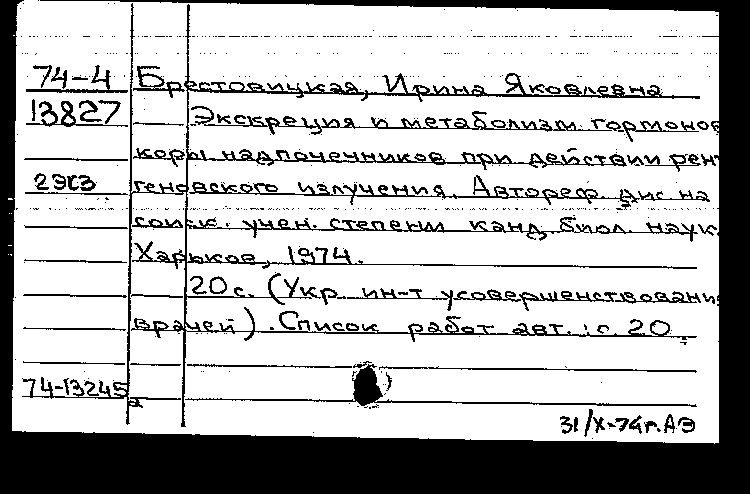 74-4 Брестовицкая, Ирина Яковлевна
13827 Экскреция и метаболизм гормонов
коры надпочечников при действии рент
2ЭКЗ геновского излучения. Автореф. дис. на
соиск. учен. степени канд. биол. наук.
Харьков, 1974.
20 с. (Укр. ин-т усовершенствования
врачей). Список работ авт.: с. 20.
74-13245
а
31/X-74г. АЭ